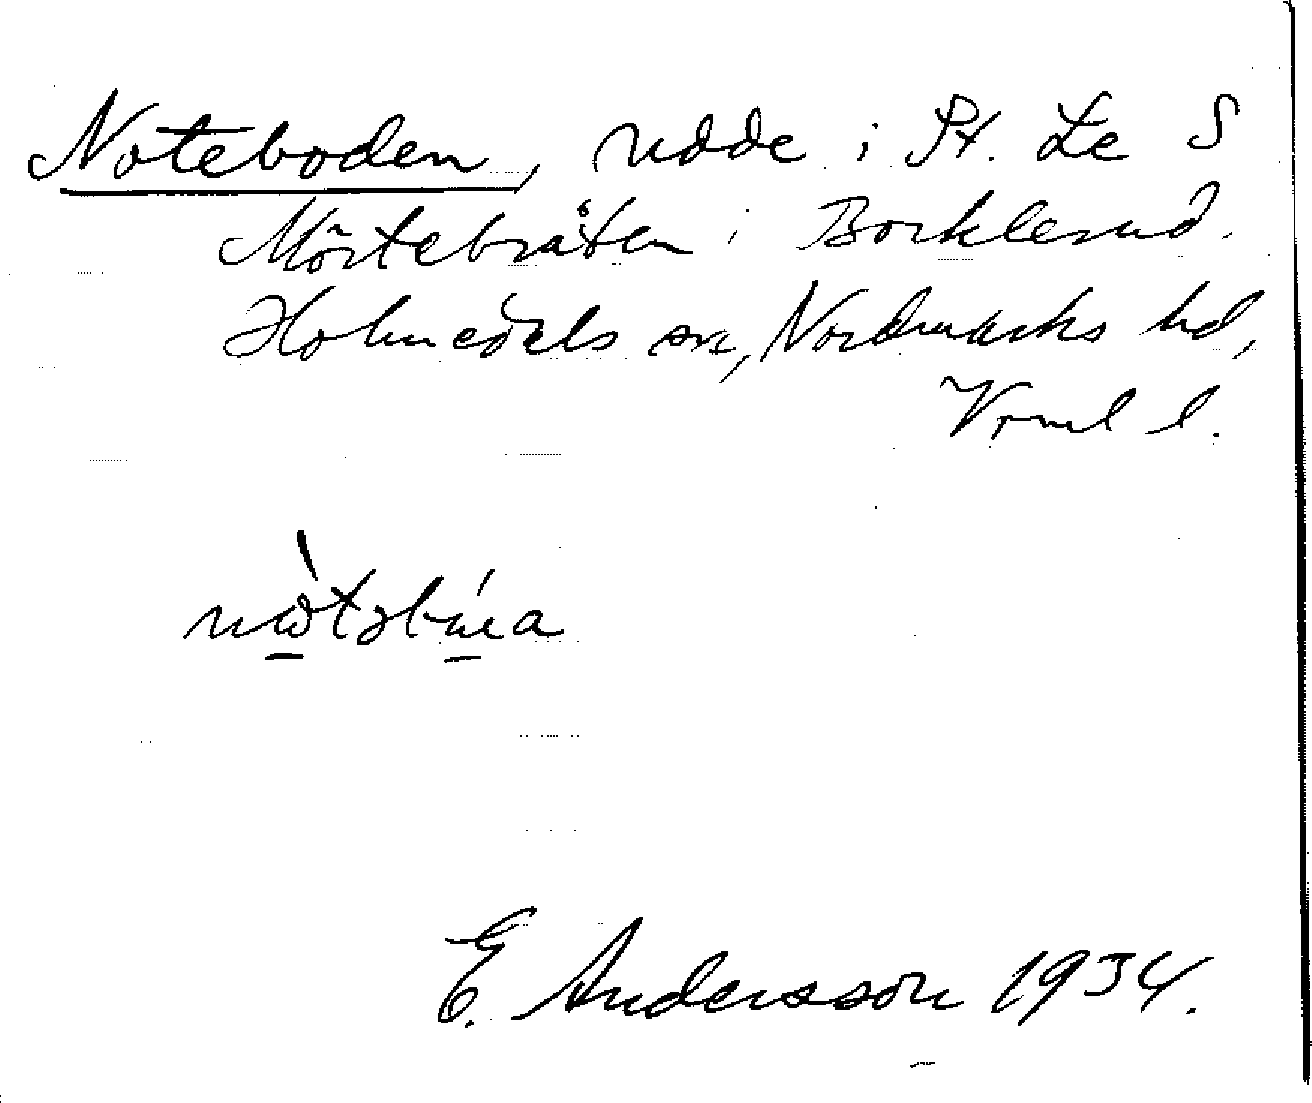 Noteboden, udde i St. Le S
Mörtebråten i Bocklerud.
Holmedals sn, Nordmarks hd,
Vrml l.
E. Andersson 1934.